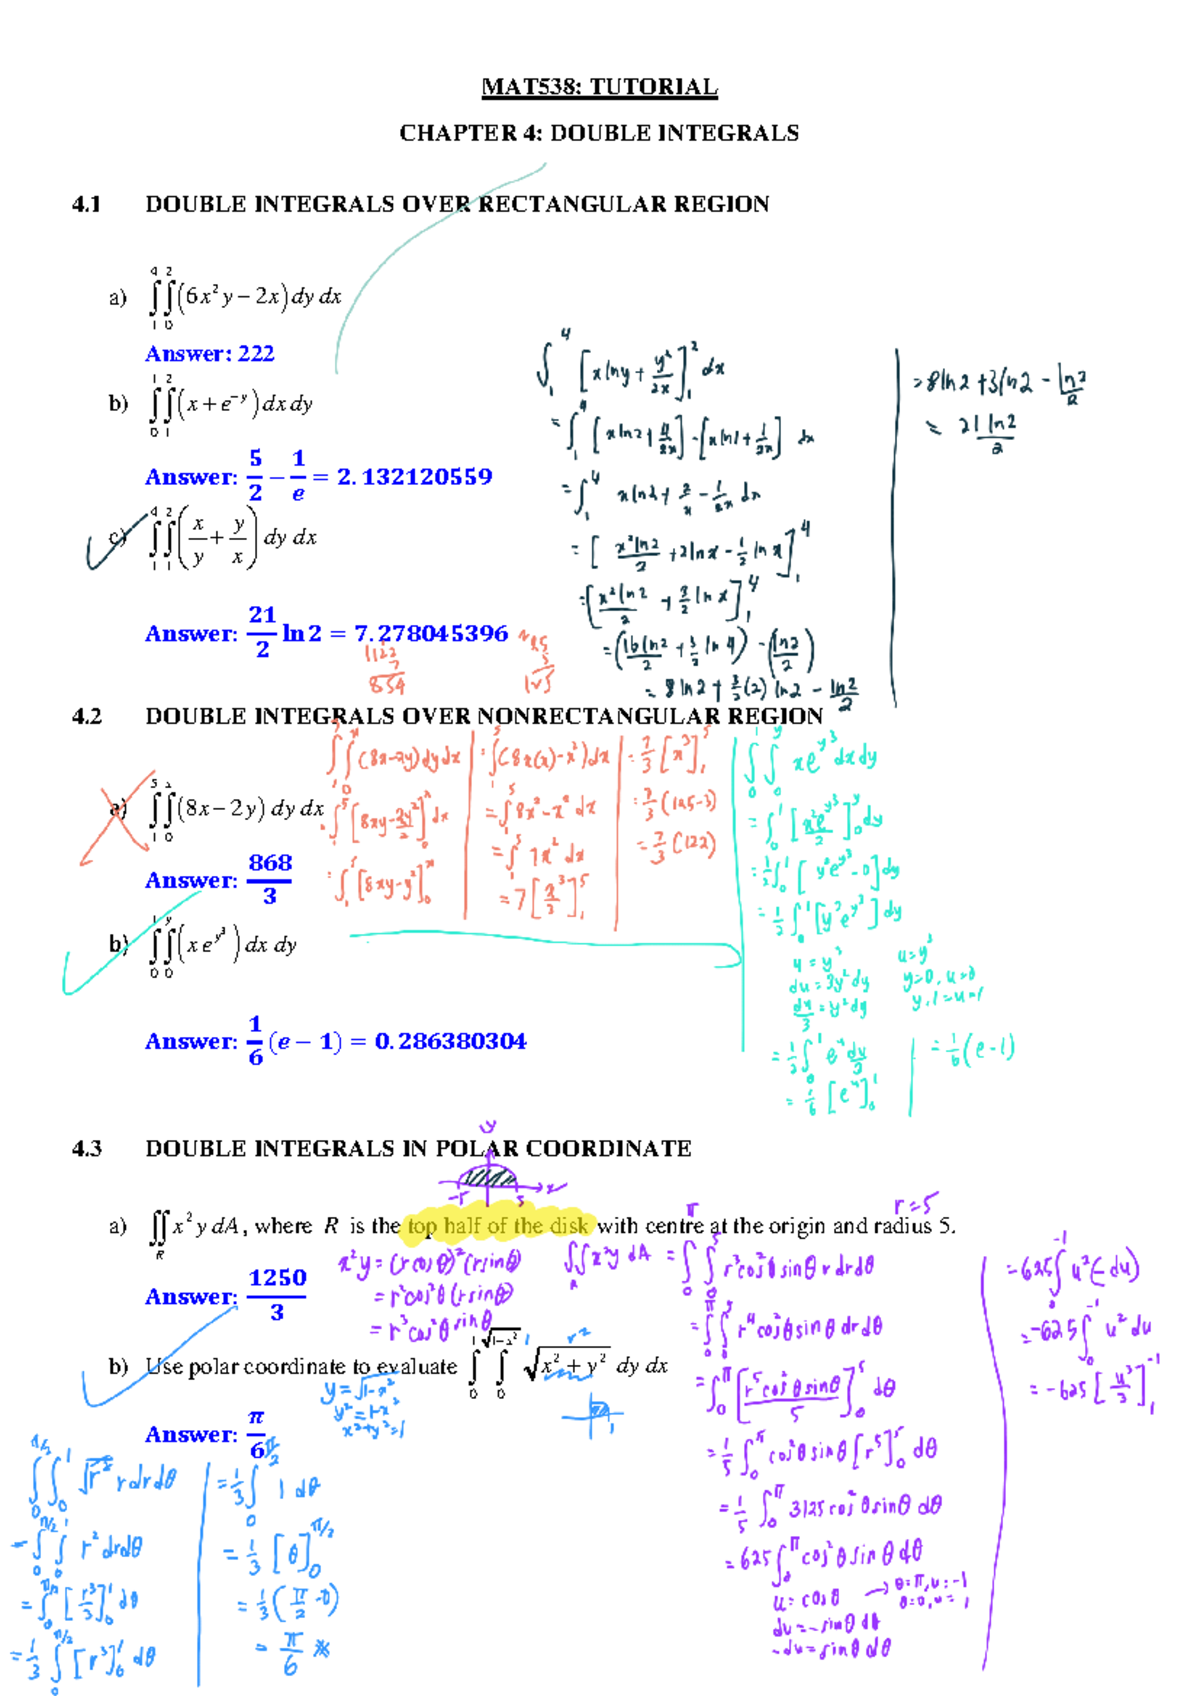 MAT538: TUTORIAL
CHAPTER 4: DOUBLE INTEGRALS
4.1 DOUBLE INTEGRALS OVER RECTANGULAR REGION
a) ∫₁⁴ ∫₀² (6x²y − 2x) dy dx
Answer: 222
b) ∫₀¹ ∫₁² (x + e⁻ʸ) dx dy
Answer: 5/2 − 1/e = 2.132120559
c) ∫₁⁴ ∫₁² (x/y + y/x) dy dx
Answer: 21/2 ln 2 = 7.278045396
∫₁⁴ [x ln y + y²/2x]₁² dx
= ∫₁⁴ [x ln 2 + 4/2x] - [x ln 1 + 1/2x] dx
= ∫₁⁴ x ln 2 + 2/x - 1/2x dx
= [x² ln 2/2 + 2 ln x - 1/2 ln x]₁⁴
= [x² ln 2/2 + 3/2 ln x]₁⁴
= (16 ln 2/2 + 3/2 ln 4) - (ln 2/2)
= 8 ln 2 + 3/2 (2) ln 2 - ln 2/2
= 8 ln 2 + 3 ln 2 - ln 2/2
= 21 ln 2/2
854
4.2 DOUBLE INTEGRALS OVER NONRECTANGULAR REGION
a) ∫₁⁵ ∫₀ (8x − 2y) dy dx
Answer: 868/3
∫₁⁵ ∫₀ˣ (8x-2y) dy dx
= ∫₁⁵ [8xy - 2y²/2]₀ˣ dx
= ∫₁⁵ [8xy - y²]₀ˣ
= ∫₁⁵ (8x(x) - x²) dx
= ∫₁⁵ 8x² - x² dx
= ∫₁⁵ 7x² dx
= 7[x³/3]₁⁵
= 7/3 [x³]₁⁵
= 7/3 (125-3)
= 7/3 (122)
b) ∫₀¹ ∫₀ʸ (x e^(y³)) dx dy
Answer: 1/6 (e − 1) = 0.286380304
∫₀¹ ∫₀ʸ xe^(y³) dx dy
= ∫₀¹ [x²e^(y³)/2]₀ʸ dy
= 1/2 ∫₀¹ [y²e^(y³) - 0] dy
= 1/2 ∫₀¹ [y²e^(y³)] dy
u = y³ u = y³
du = 3y² dy y=0, u=0
du/3 = y² dy y=1 = u=1
= 1/2 ∫₀¹ eᵘ du/3
= 1/6 [eᵘ]₀¹
= 1/6 (e-1)
4.3 DOUBLE INTEGRALS IN POLAR COORDINATE
y
-5 5 x
r=5
a) ∬_R x²y dA, where R is the top half of the disk with centre at the origin and radius 5.
Answer: 1250/3
x²y = (r cos θ)²(r sin θ)
= r² cos² θ (r sin θ)
= r³ cos² θ sin θ
∬_R x²y dA = ∫₀^π ∫₀⁵ r³ cos² θ sin θ r dr dθ
= ∫₀^π ∫₀⁵ r⁴ cos² θ sin θ dr dθ
= ∫₀^π [r⁵ cos² θ sin θ/5]₀⁵ dθ
= 1/5 ∫₀^π cos² θ sin θ [r⁵]₀⁵ dθ
= 1/5 ∫₀^π 3125 cos² θ sin θ dθ
= 625 ∫₀^π cos² θ sin θ dθ
u = cos θ → θ=π, u=-1
θ=0, u=1
du = -sin θ dθ
-du = sin θ dθ
= 625 ∫ u² (-du)
= -625 ∫ u² du
= -625 [u³/3]₁⁻¹
b) Use polar coordinate to evaluate ∫₀¹ ∫₀^√(1−x²) √(x² + y²) dy dx
r²
Answer: π/6
y = √(1-x²)
y² = 1-x²
x²+y² = 1
∫₀^(π/2) ∫₀¹ √r² r dr dθ
= ∫₀^(π/2) ∫₀¹ r² dr dθ
= ∫₀^(π/2) [r³/3]₀¹ dθ
= 1/3 ∫₀^(π/2) [r³]₀¹ dθ
= 1/3 ∫₀^(π/2) 1 dθ
= 1/3 [θ]₀^(π/2)
= 1/3 (π/2 - 0)
= π/6